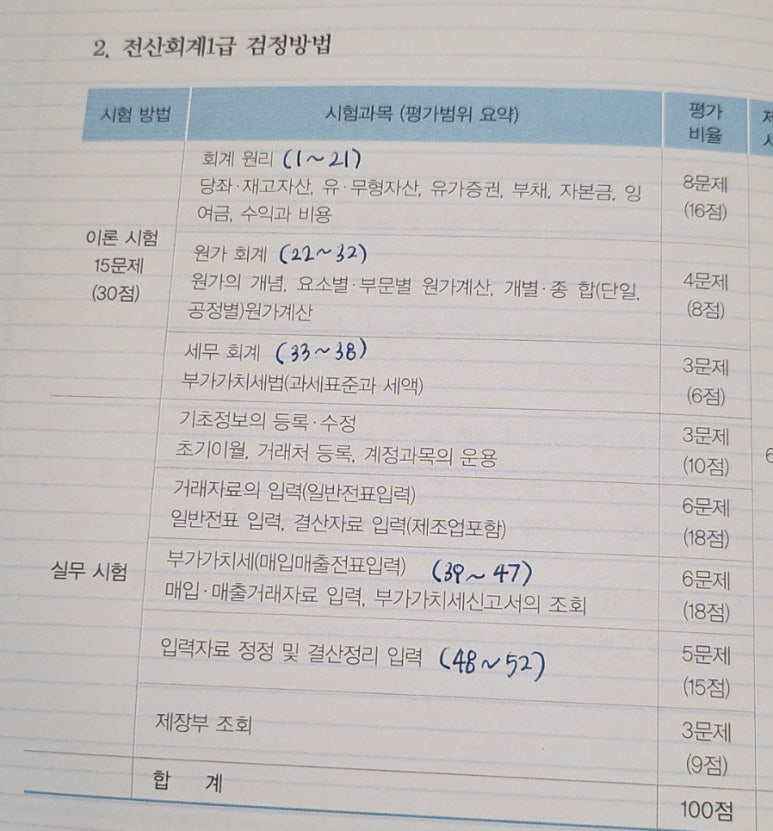 2. 전산회계1급 검정방법
시험 방법
시험과목 (평가범위 요약)
평가
비율
회계 원리 (1~21)
당좌·재고자산, 유·무형자산, 유가증권, 부채, 자본금, 잉
여금, 수익과 비용
8문제
(16점)
이론 시험
15문제
(30점)
원가 회계 (22~32)
원가의 개념, 요소별·부문별 원가계산, 개별·종 합(단일,
공정별)원가계산
4문제
(8점)
세무 회계 (33~38)
부가가치세법(과세표준과 세액)
3문제
(6점)
기초정보의 등록·수정
초기이월, 거래처 등록, 계정과목의 운용
3문제
(10점)
거래자료의 입력(일반전표입력)
일반전표 입력, 결산자료 입력(제조업포함)
6문제
(18점)
실무 시험
부가가치세(매입매출전표입력) (39~47)
매입·매출거래자료 입력, 부가가치세신고서의 조회
6문제
(18점)
입력자료 정정 및 결산정리 입력 (48~52)
5문제
(15점)
제장부 조회
3문제
(9점)
합 계
100점